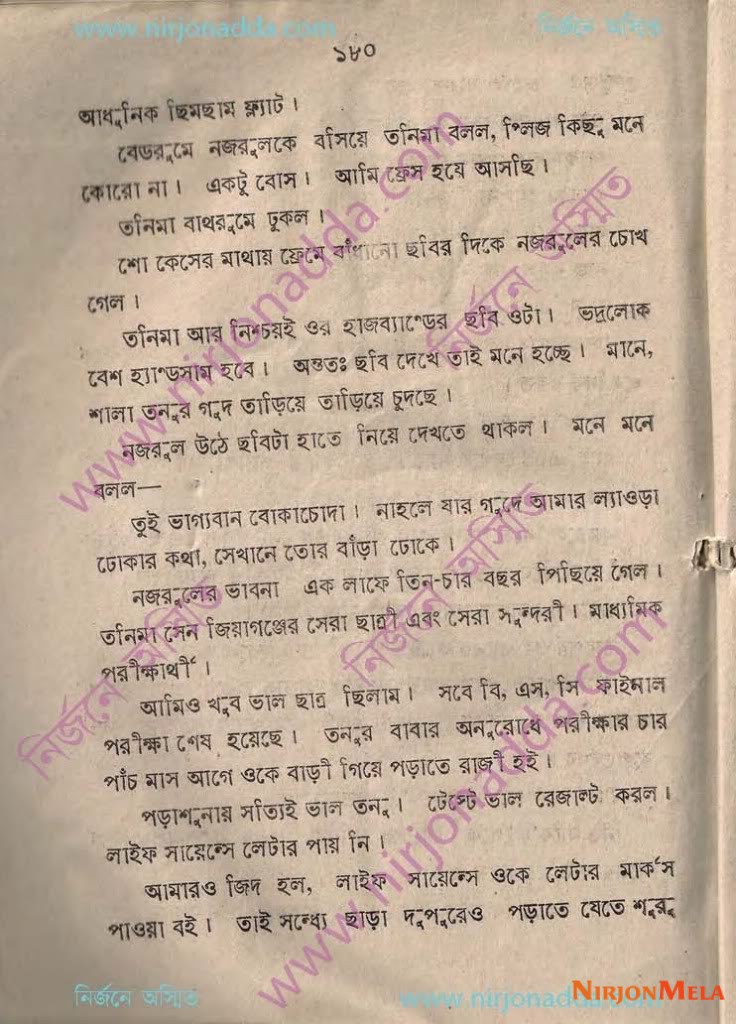 www.nirjonadda.com নির্জনে অস্মিত
১৮০
আধুনিক ছিমছাম ফ্ল্যাট।
বেডরুমে নজরুলকে বসিয়ে তনিমা বলল, প্লিজ কিছু মনে
কোরো না। একটু বোস। আমি ফ্রেস হয়ে আসছি।
তনিমা বাথরুমে ঢুকল।
শো কেসের মাথায় ফ্রেমে বাঁধানো ছবির দিকে নজরুলের চোখ
গেল।
তনিমা আর নিশ্চয়ই ওর হাজব্যাণ্ডের ছবি ওটা। ভদ্রলোক
বেশ হ্যাণ্ডসাম হবে। অন্ততঃ ছবি দেখে তাই মনে হচ্ছে। মানে,
শালা তনুর গুদ তাড়িয়ে তাড়িয়ে চুদছে।
নজরুল উঠে ছবিটা হাতে নিয়ে দেখতে থাকল। মনে মনে
বলল—
তুই ভাগ্যবান বোকাচোদা। নাহলে যার গুদে আমার ল্যাওড়া
ঢোকার কথা, সেখানে তোর বাঁড়া ঢোকে।
নজরুলের ভাবনা এক লাফে তিন-চার বছর পিছিয়ে গেল।
তনিমা সেন জিয়াগঞ্জের সেরা ছাত্রী এবং সেরা সুন্দরী। মাধ্যমিক
পরীক্ষার্থী।
আমিও খুব ভাল ছাত্র ছিলাম। সবে বি, এস, সি ফাইনাল
পরীক্ষা শেষ হয়েছে। তনুর বাবার অনুরোধে পরীক্ষার চার
পাঁচ মাস আগে ওকে বাড়ী গিয়ে পড়াতে রাজী হই।
পড়াশুনায় সত্যিই ভাল তনু। টেস্টে ভাল রেজাল্ট করল।
লাইফ সায়েন্সে লেটার পায় নি।
আমারও জিদ হল, লাইফ সায়েন্সে ওকে লেটার মার্কস
পাওয়াবই। তাই সন্ধ্যে ছাড়া দুপুরেও পড়াতে যেতে শুরু
নির্জনে অস্মিত www.nirjonadda.com
NIRJONMELA
www.nirjonadda.com
নির্জনে অস্মিত
নির্জনে অস্মিত
নির্জনে অস্মিত
www.nirjonadda.com